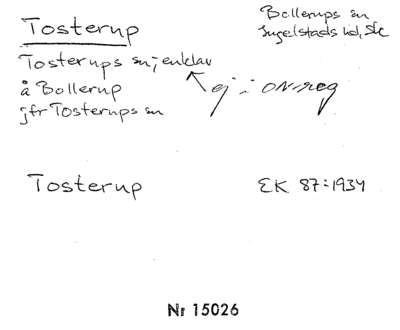 Tosterup
Bollerups sn
Ingelstads hd, Sk
Tosterups sn; enklav
å Bollerup
jfr Tosterups sn
ej i ON-reg
Tosterup
EK 87:1934
Nr 15026